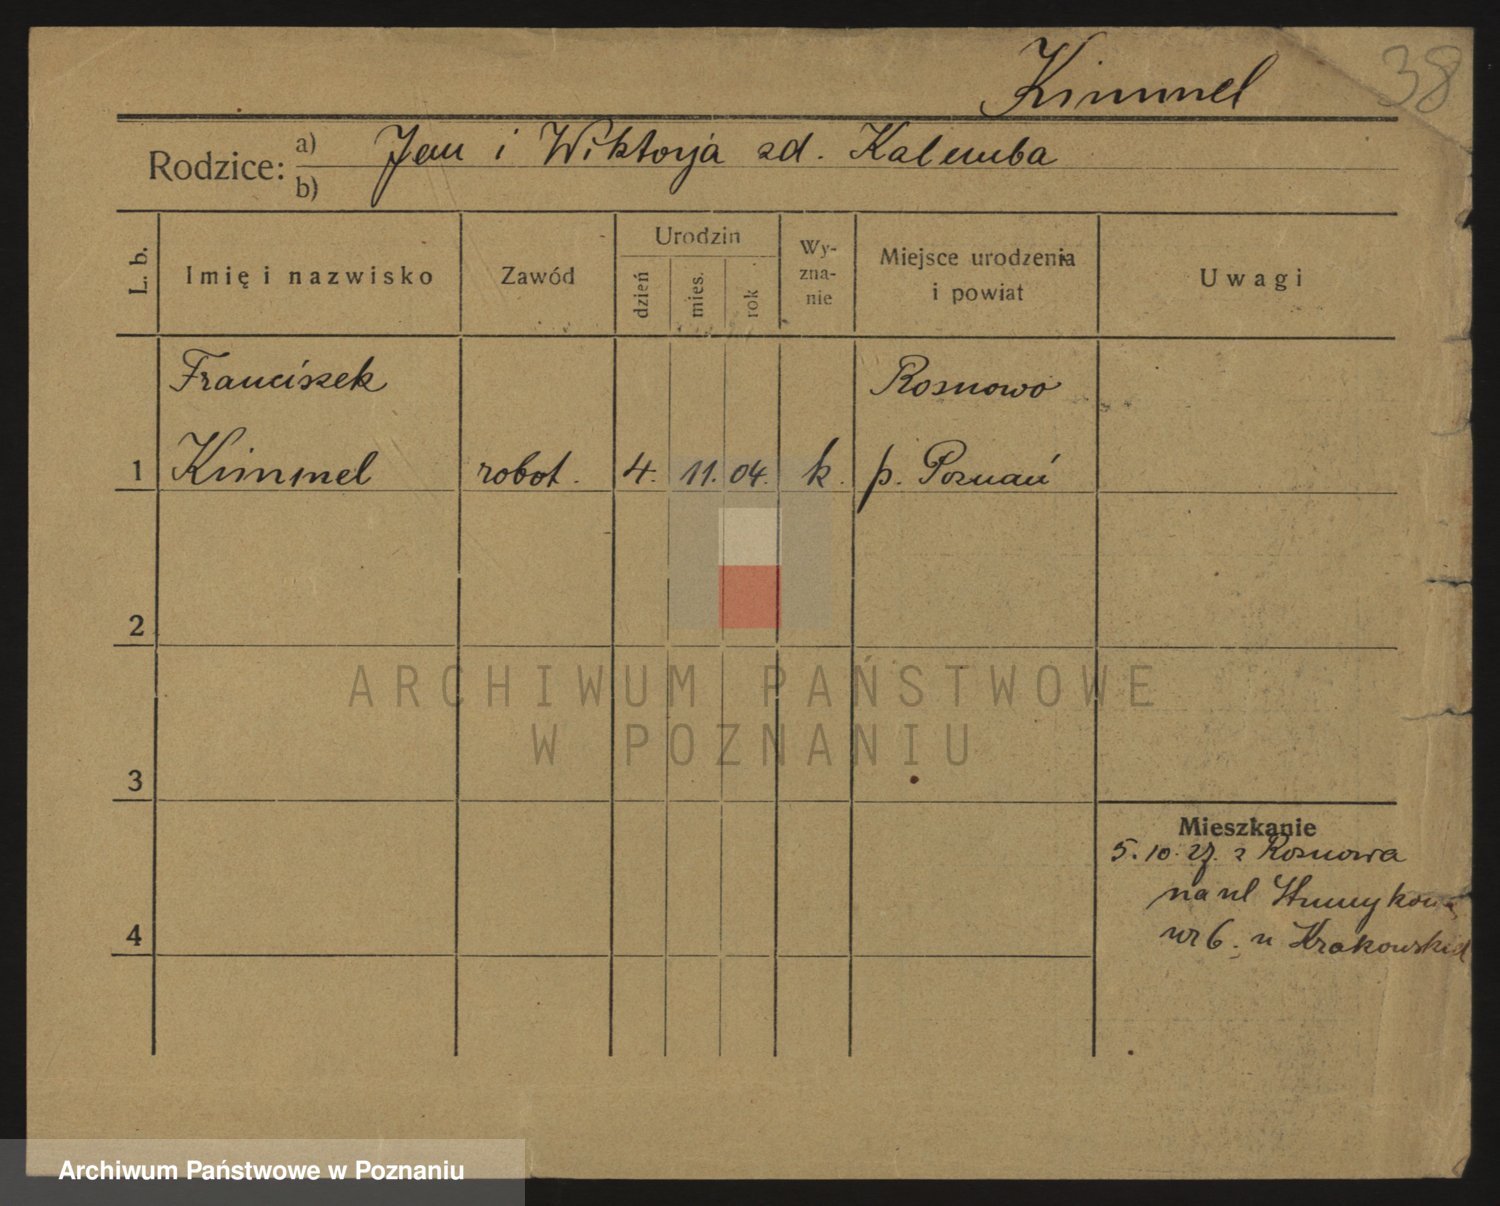 Kimmel
38
Rodzice: a) Jan i Wiktorja zd. Kalemba
b)
L. b.
Imię i nazwisko
Zawód
Urodzin
dzień
mies.
rok
Wy-
zna-
nie
Miejsce urodzenia
i powiat
Uwagi
Franciszek
Rosnowo
1 Kimmel robot. 4. 11. 04. k. p. Poznań
2
ARCHIWUM PAŃSTWOWE
W POZNANIU
3
Mieszkanie
5. 10. 27. z Rosnowa
na ul
4
nr 6. u
Archiwum Państwowe w Poznaniu